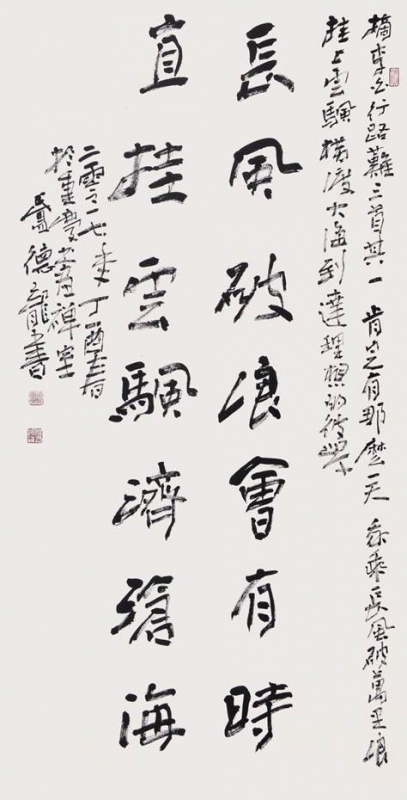 摘李白行路難三首其一 肯定会有那麼一天 乘長風破萬里浪
挂上雲颿橫渡大海到達理想的彼岸
長風破浪會有時
直挂雲颿濟滄海
二零一七年丁酉
於重慶禪室
德龍書